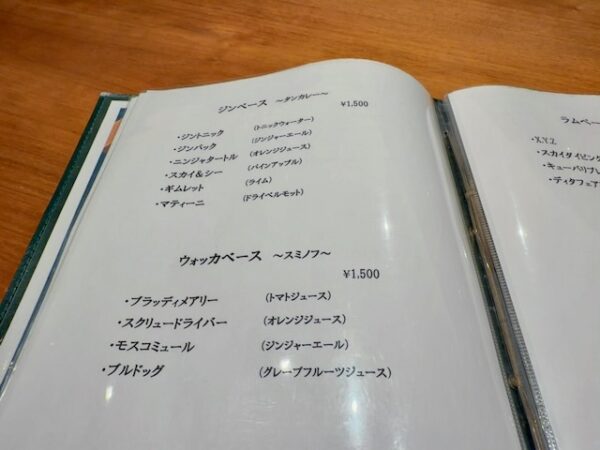 ジンベース ～タンカレー～
¥1,500
・ジントニック (トニックウォーター)
・ジンバック (ジンジャーエール)
・ニンジャタートル (オレンジジュース)
・スカイ＆シー (パインアップル)
・ギムレット (ライム)
・マティーニ (ドライベルモット)
ウォッカベース ～スミノフ～
¥1,500
・ブラッディメアリー (トマトジュース)
・スクリュードライバー (オレンジジュース)
・モスコミュール (ジンジャーエール)
・ブルドッグ (グレープフルーツジュース)
ラムベー
・X.Y.Z
・スカイダイビング
・キューバリブレ
・ティタフェア